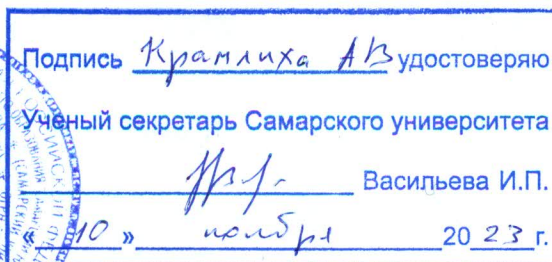 Подпись Крамлиха АВ удостоверяю
Ученый секретарь Самарского университета
Васильева И.П.
«10» ноября 2023 г.